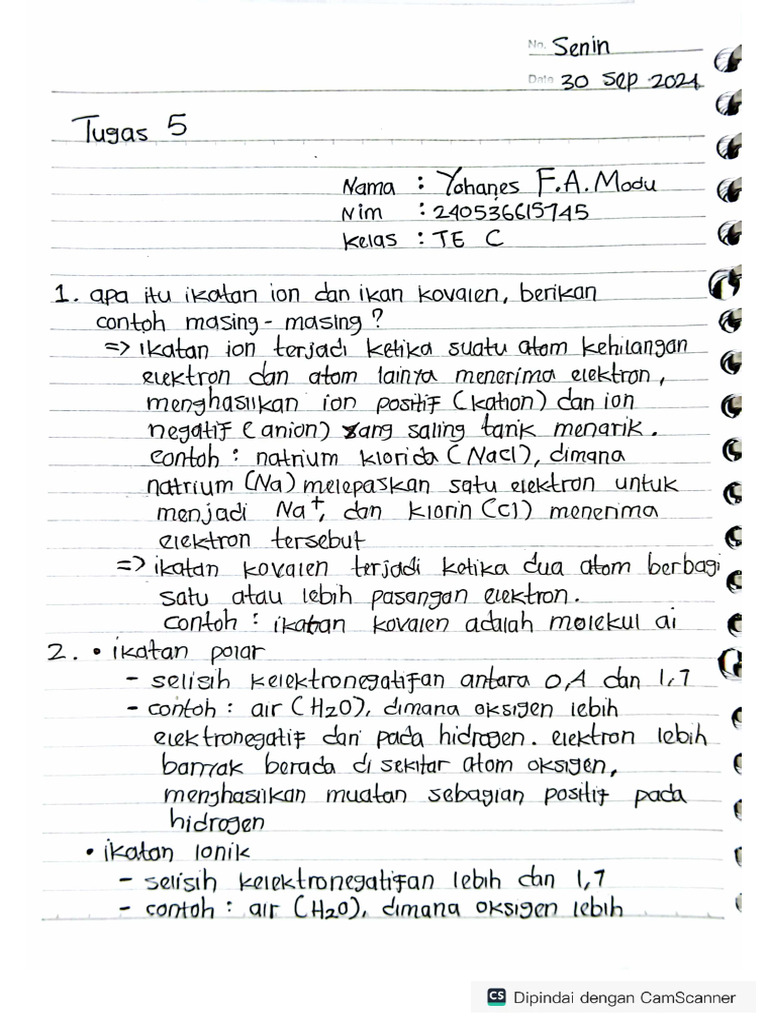 No. Senin
Date 30 Sep 2024
Tugas 5
Nama : Yohanes F.A. Modu
Nim : 240536615745
Kelas : TE C
1. apa itu ikatan ion dan ikan kovalen, berikan
contoh masing-masing?
=> ikatan ion terjadi ketika suatu atom kehilangan
elektron dan atom lainya menerima elektron,
menghasilkan ion positif (kation) dan ion
negatif (anion) yang saling tarik menarik.
contoh : natrium klorida (NaCl), dimana
natrium (Na) melepaskan satu elektron untuk
menjadi Na⁺, dan klorin (Cl) menerima
elektron tersebut
=> ikatan kovalen terjadi ketika dua atom berbagi
satu atau lebih pasangan elektron.
contoh : ikatan kovalen adalah molekul ai
2. • ikatan polar
- selisih kelektronegatifan antara 0,4 dan 1,7
- contoh : air (H2O), dimana oksigen lebih
elektronegatif dari pada hidrogen. elektron lebih
banyak berada di sekitar atom oksigen,
menghasilkan muatan sebagian positif pada
hidrogen
• ikatan Ionik
- selisih kelektronegatifan lebih dan 1,7
- contoh : air (H2O), dimana oksigen lebih
CS Dipindai dengan CamScanner